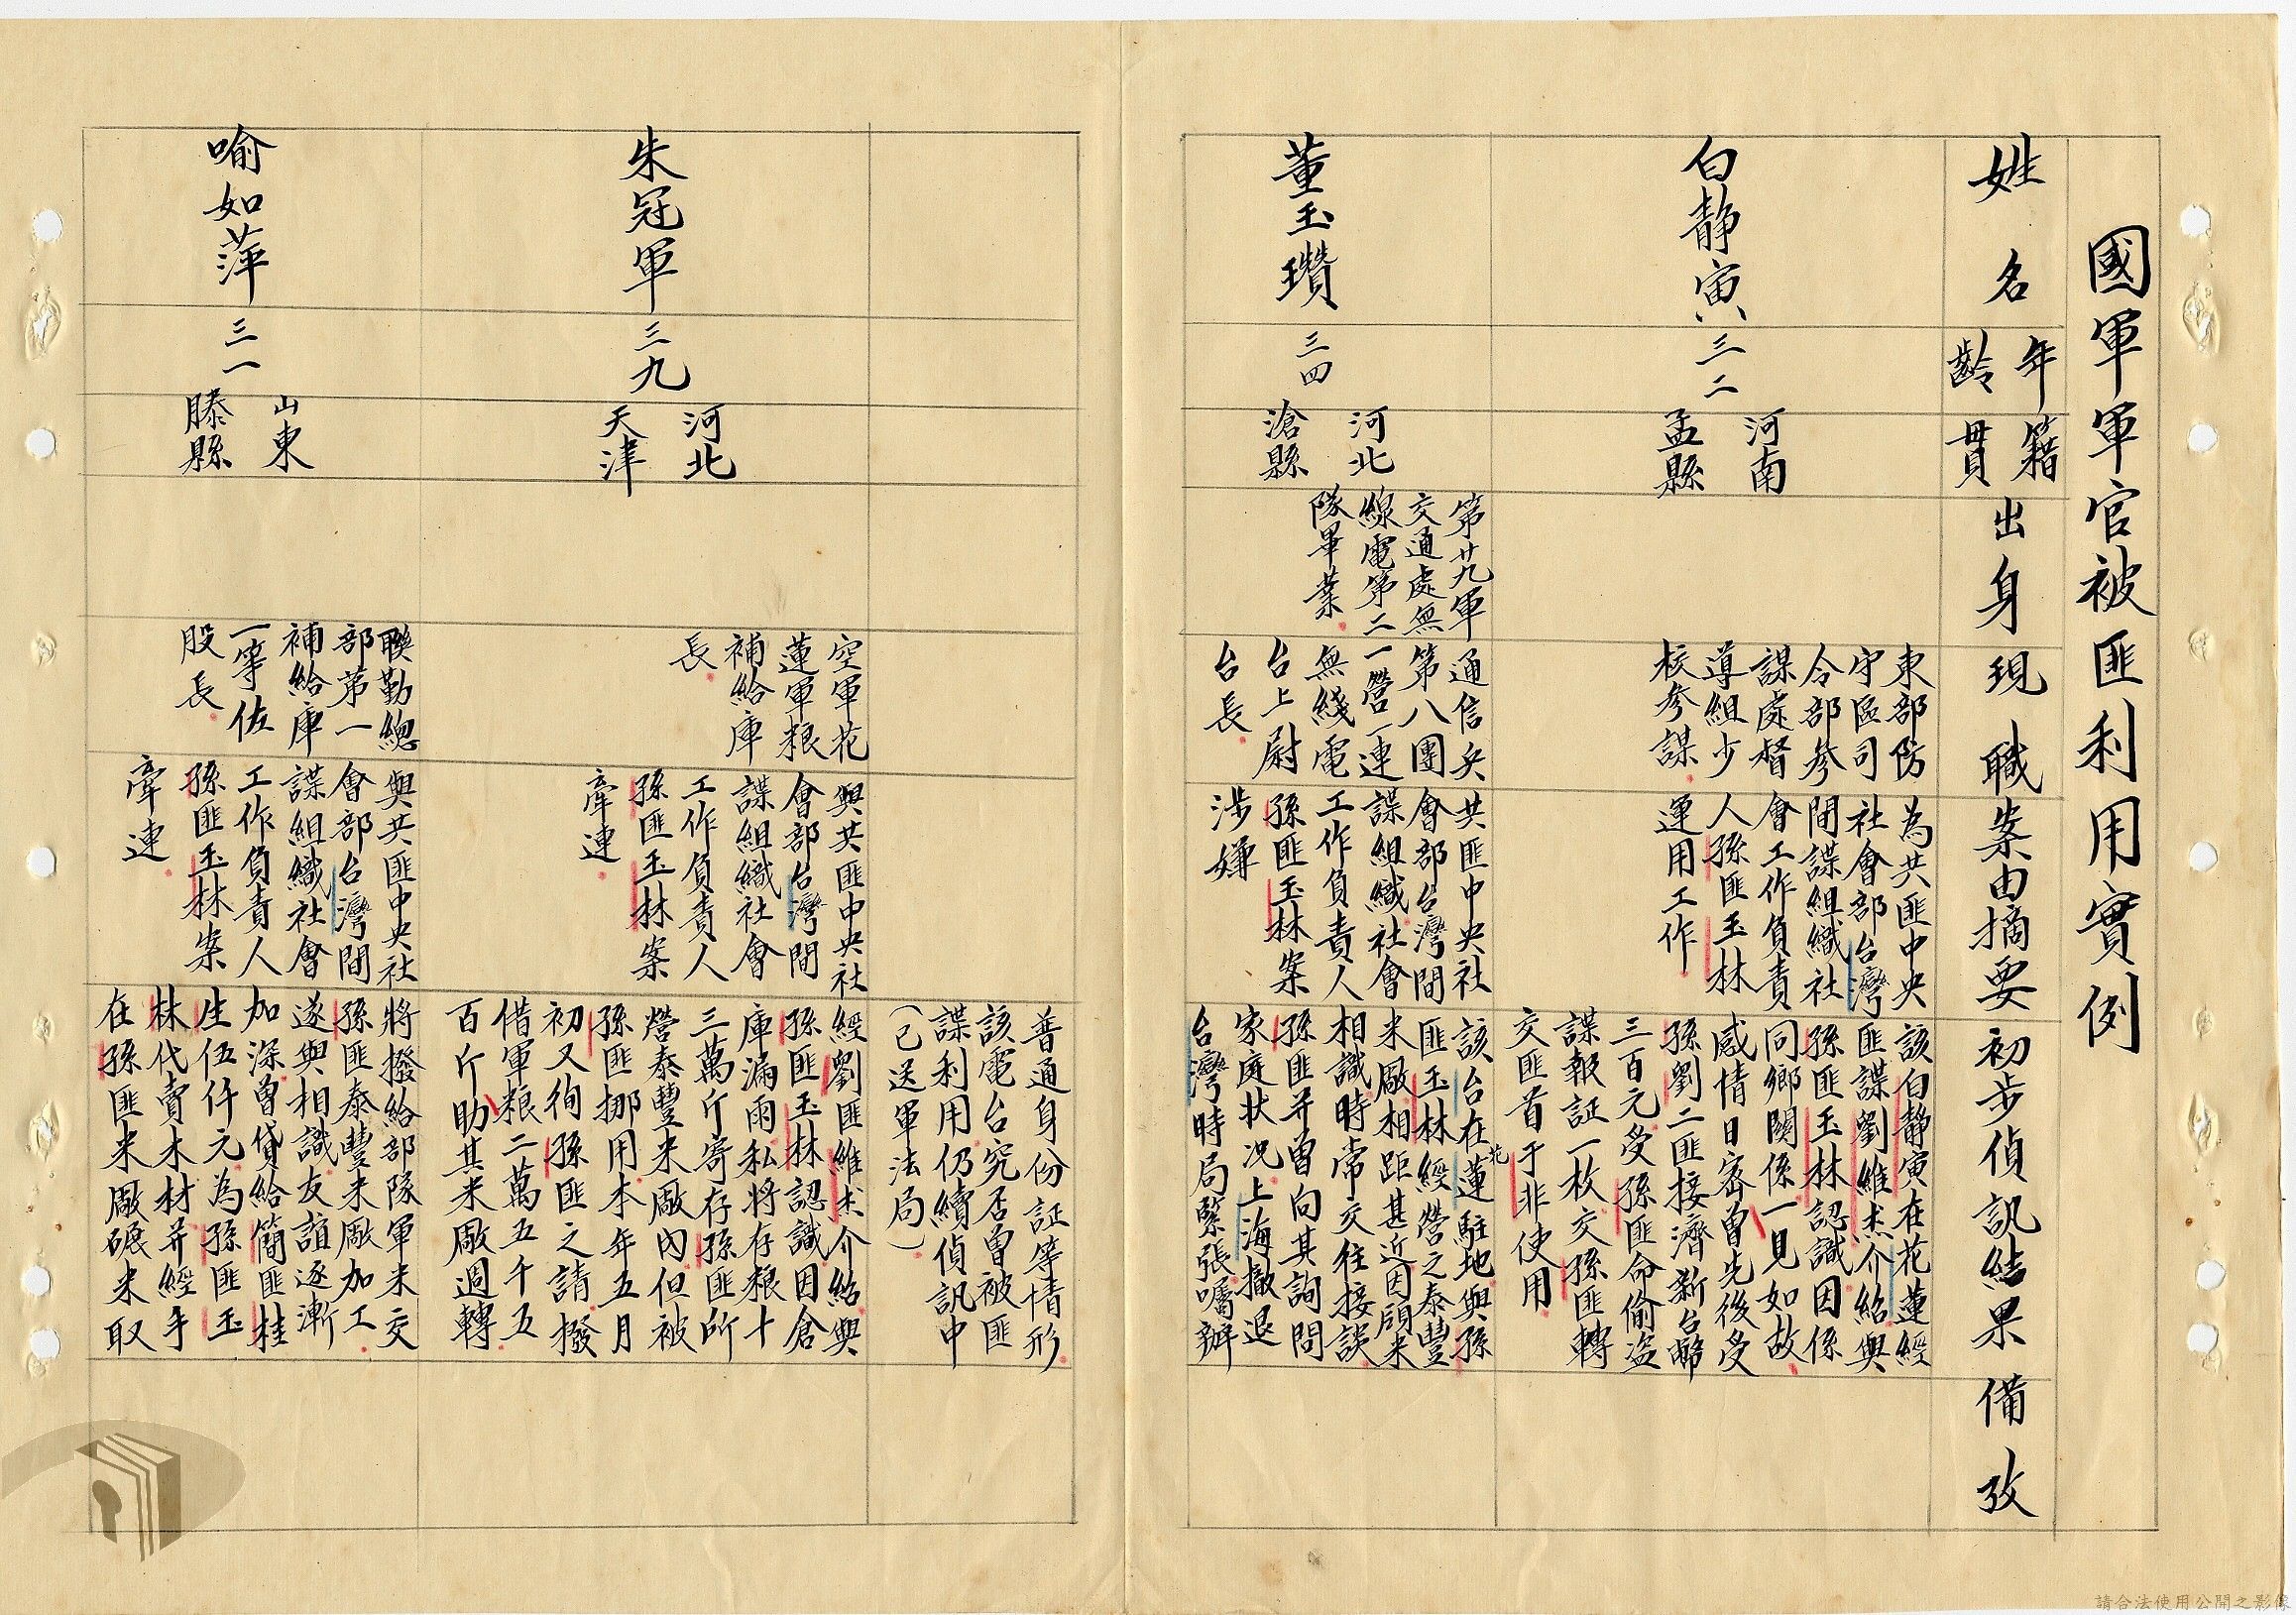 國軍軍官被匪利用實例
姓名
年齡
籍貫
出身
現職
案由摘要
初步偵訊結果
備攷
白靜寅
三二
河南
孟縣
東部防
守區司
令部參
謀處督
導組少
校參謀
為共匪中央
社會部台灣
間諜組織社
會工作負責
人孫匪玉林
運用工作
該白靜寅在花蓮經
匪諜劉維杰介紹與
孫匪玉林認識因係
同鄉關係一見如故
感情日密曾先後受
孫劉二匪接濟新台幣
三百元受孫匪命偷盜
諜報証一枚交孫匪轉
交匪首于非使用
董玉瓚
三四
河北
滄縣
第廿九軍
交通處無
線電第二
隊畢業
通信兵
第八團
一營一連
無綫電
台上尉
台長
共匪中央社
會部台灣間
諜組織社會
工作負責人
孫匪玉林案
涉嫌
該台在花蓮駐地與孫
匪玉林經營之泰豐
米廠相距甚近因碩米
相識時常交往接談
孫匪并曾向其詢問
家庭狀況上海撤退
台灣時局緊張囑辦
普通身份証等情形
該電台究否曾被匪
諜利用仍續偵訊中
（已送軍法局）
朱冠軍
三九
河北
天津
空軍花
蓮軍粮
補給庫
長
與共匪中央社
會部台灣間
諜組織社會
工作負責人
孫匪玉林案
牽連
經劉匪維杰介紹與
孫匪玉林認識因倉
庫漏雨私將存粮十
三萬斤寄存孫匪所
營泰豐米廠內但被
孫匪挪用本年五月
初又徇孫匪之請撥
借軍粮二萬五千五
百斤助其米廠週轉
喻如萍
三一
山東
滕縣
聯勤總
部第一
補給庫
一等佐
股長
與共匪中央社
會部台灣間
諜組織社會
工作負責人
孫匪玉林案
牽連
將撥給部隊軍米交
孫匪泰豐米廠加工
遂與相識友誼逐漸
加深曾貸給簡匪桂
生伍仟元為孫匪玉
林代賣木材并經手
在孫匪米廠碾米取
請合法使用公開之影像